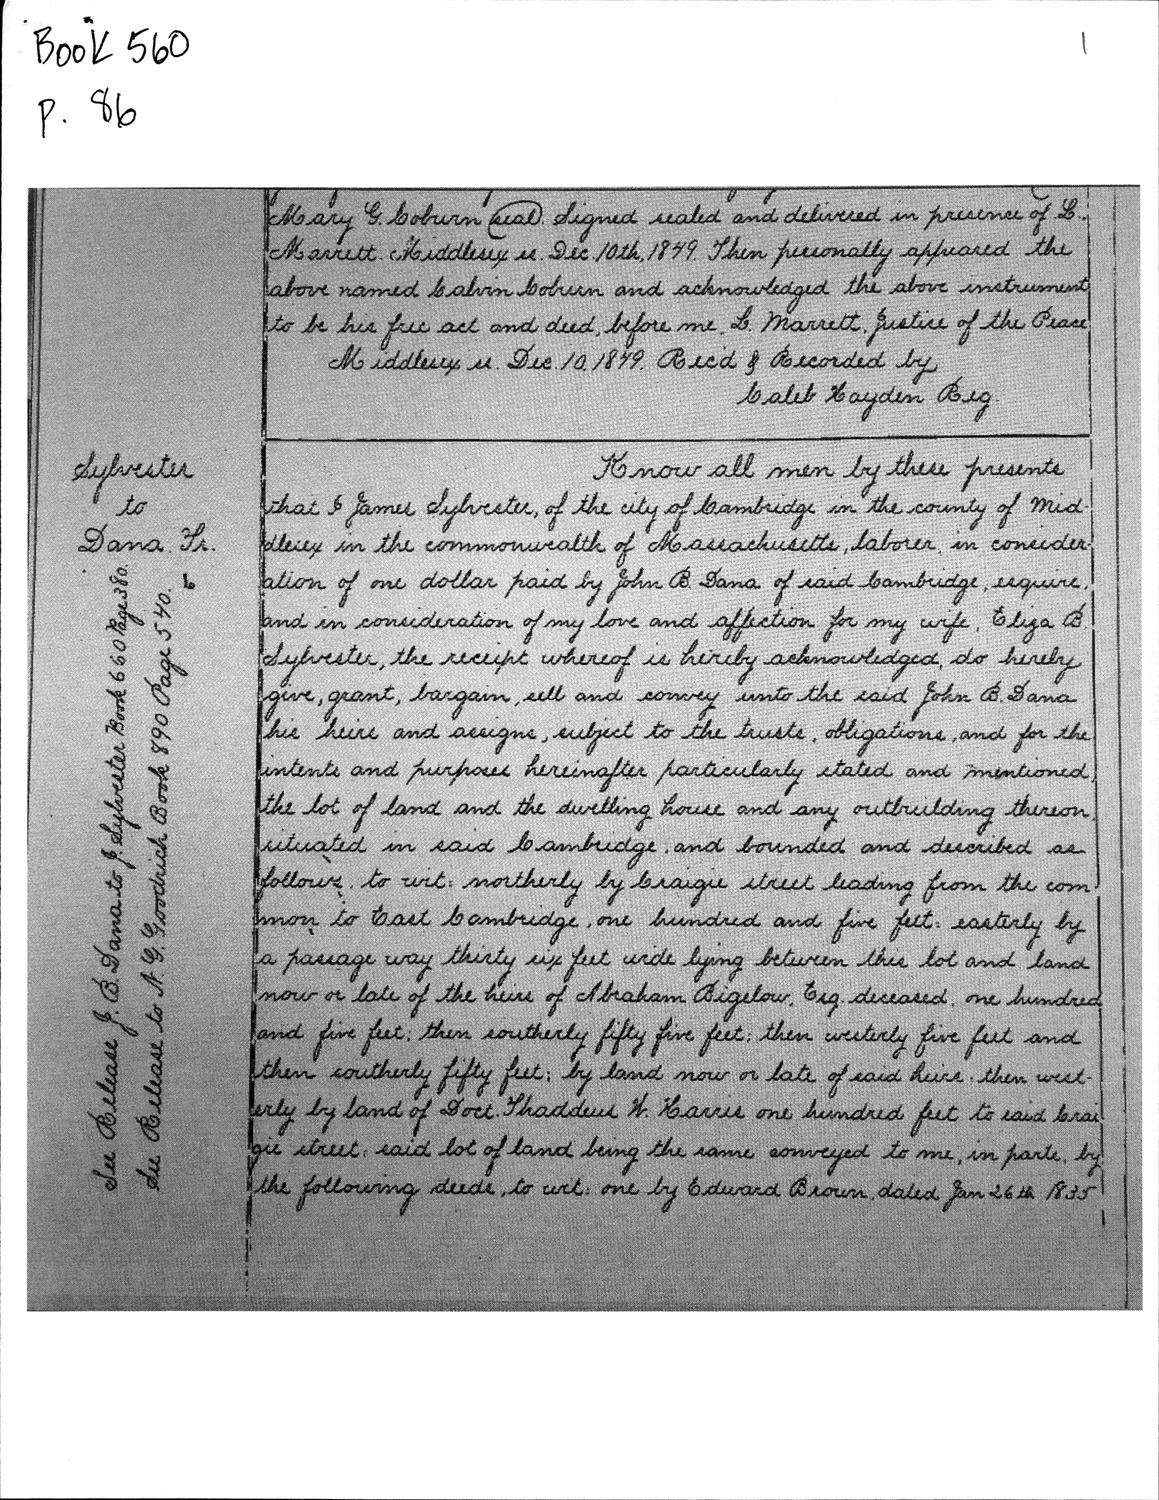 Book 560
p. 86
1
Mary G. Coburn (seal). Signed sealed and delivered in presence of L.
Marrett. Middlesex ss. Dec. 10th, 1849. Then personally appeared the
above named Calvin Coburn and acknowledged the above instrument
to be his free act and deed, before me, L. Marrett, Justice of the Peace
Middlesex ss. Dec. 10, 1849. Rec'd & Recorded by
Caleb Hayden Reg.
Sylvester
to
Dana. Tr.
See Release J. B. Dana to J. Sylvester Book 660 Page 380.
See Release to N. G. Goodrich Book 890 Page 540.
Know all men by these presents
that I James Sylvester, of the city of Cambridge in the county of Mid-
dlesex in the commonwealth of Massachusetts, laborer, in consider-
ation of one dollar paid by John B. Dana of said Cambridge, esquire,
and in consideration of my love and affection for my wife, Eliza B.
Sylvester, the receipt whereof is hereby acknowledged, do hereby
give, grant, bargain, sell and convey unto the said John B. Dana
his heirs and assigns, subject to the trusts, obligations, and for the
intents and purposes hereinafter particularly stated and mentioned,
the lot of land and the dwelling house and any outbuilding thereon,
situated in said Cambridge, and bounded and described as
follows, to wit: northerly by Craigie street leading from the com-
mon to East Cambridge, one hundred and five feet: easterly by
a passage way thirty six feet wide lying between this lot and land
now or late of the heirs of Abraham Bigelow, Esq. deceased, one hundred
and five feet; then southerly fifty five feet; then westerly five feet and
then southerly fifty feet; by land now or late of said heirs: then west-
erly by land of Doct. Thaddeus W. Harris one hundred feet to said Crai-
gie street: said lot of land being the same conveyed to me, in parts, by
the following deeds, to wit: one by Edward Brown, dated Jan 26th 1835